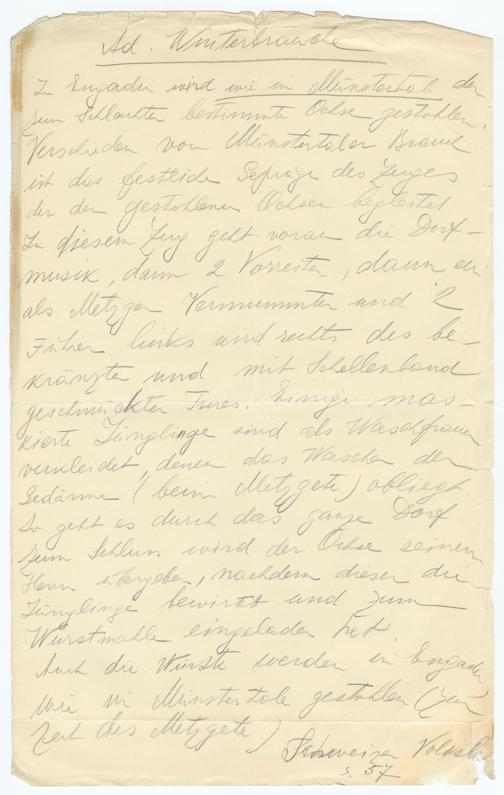 Ad. Winterbräuche
In Engadin wird wie in Münstertale der
zum Schlachten bestimmte Ochse gestohlen.
Verschieden vom Münstertaler Brauch
ist das festliche Gepräge des Zuges
der den gestohlenen Ochsen begleitet.
In diesem Zug geht voran die Dorf-
musik, dann 2 Vorreiter, dann ein
als Metzger Vermummter und 2
Führer links und rechts des be-
kränzten und mit Schellenband
geschmückten Tieres. Einige mas-
kierte Jünglinge sind als Waschfrauen
verkleidet, denen das Waschen der
Gedärme (beim Metzgete) obliegt.
So geht es durch das ganze Dorf.
Zum Schluss wird der Ochse seinem
Herrn übergeben, nachdem dieser die
Jünglinge bewirtet und zum
Wurstmahle eingeladen hat.
Auch die Würste werden in Engadin
wie in Münstertale gestohlen (zur
Zeit des Metzgete)
Schweizer Volksk
s. 57